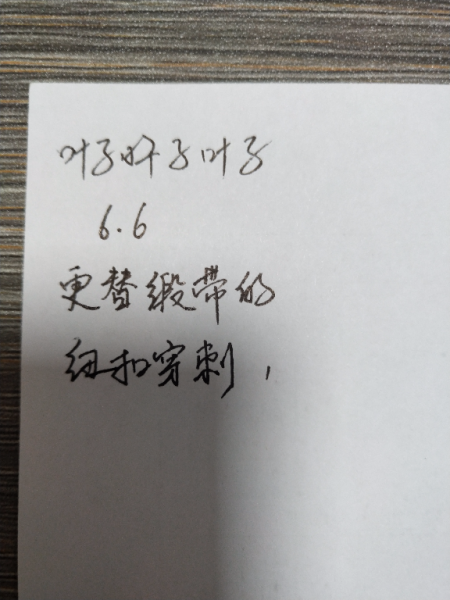 叶子叶子叶子
6.6
更替缎带的
纽扣穿刺，